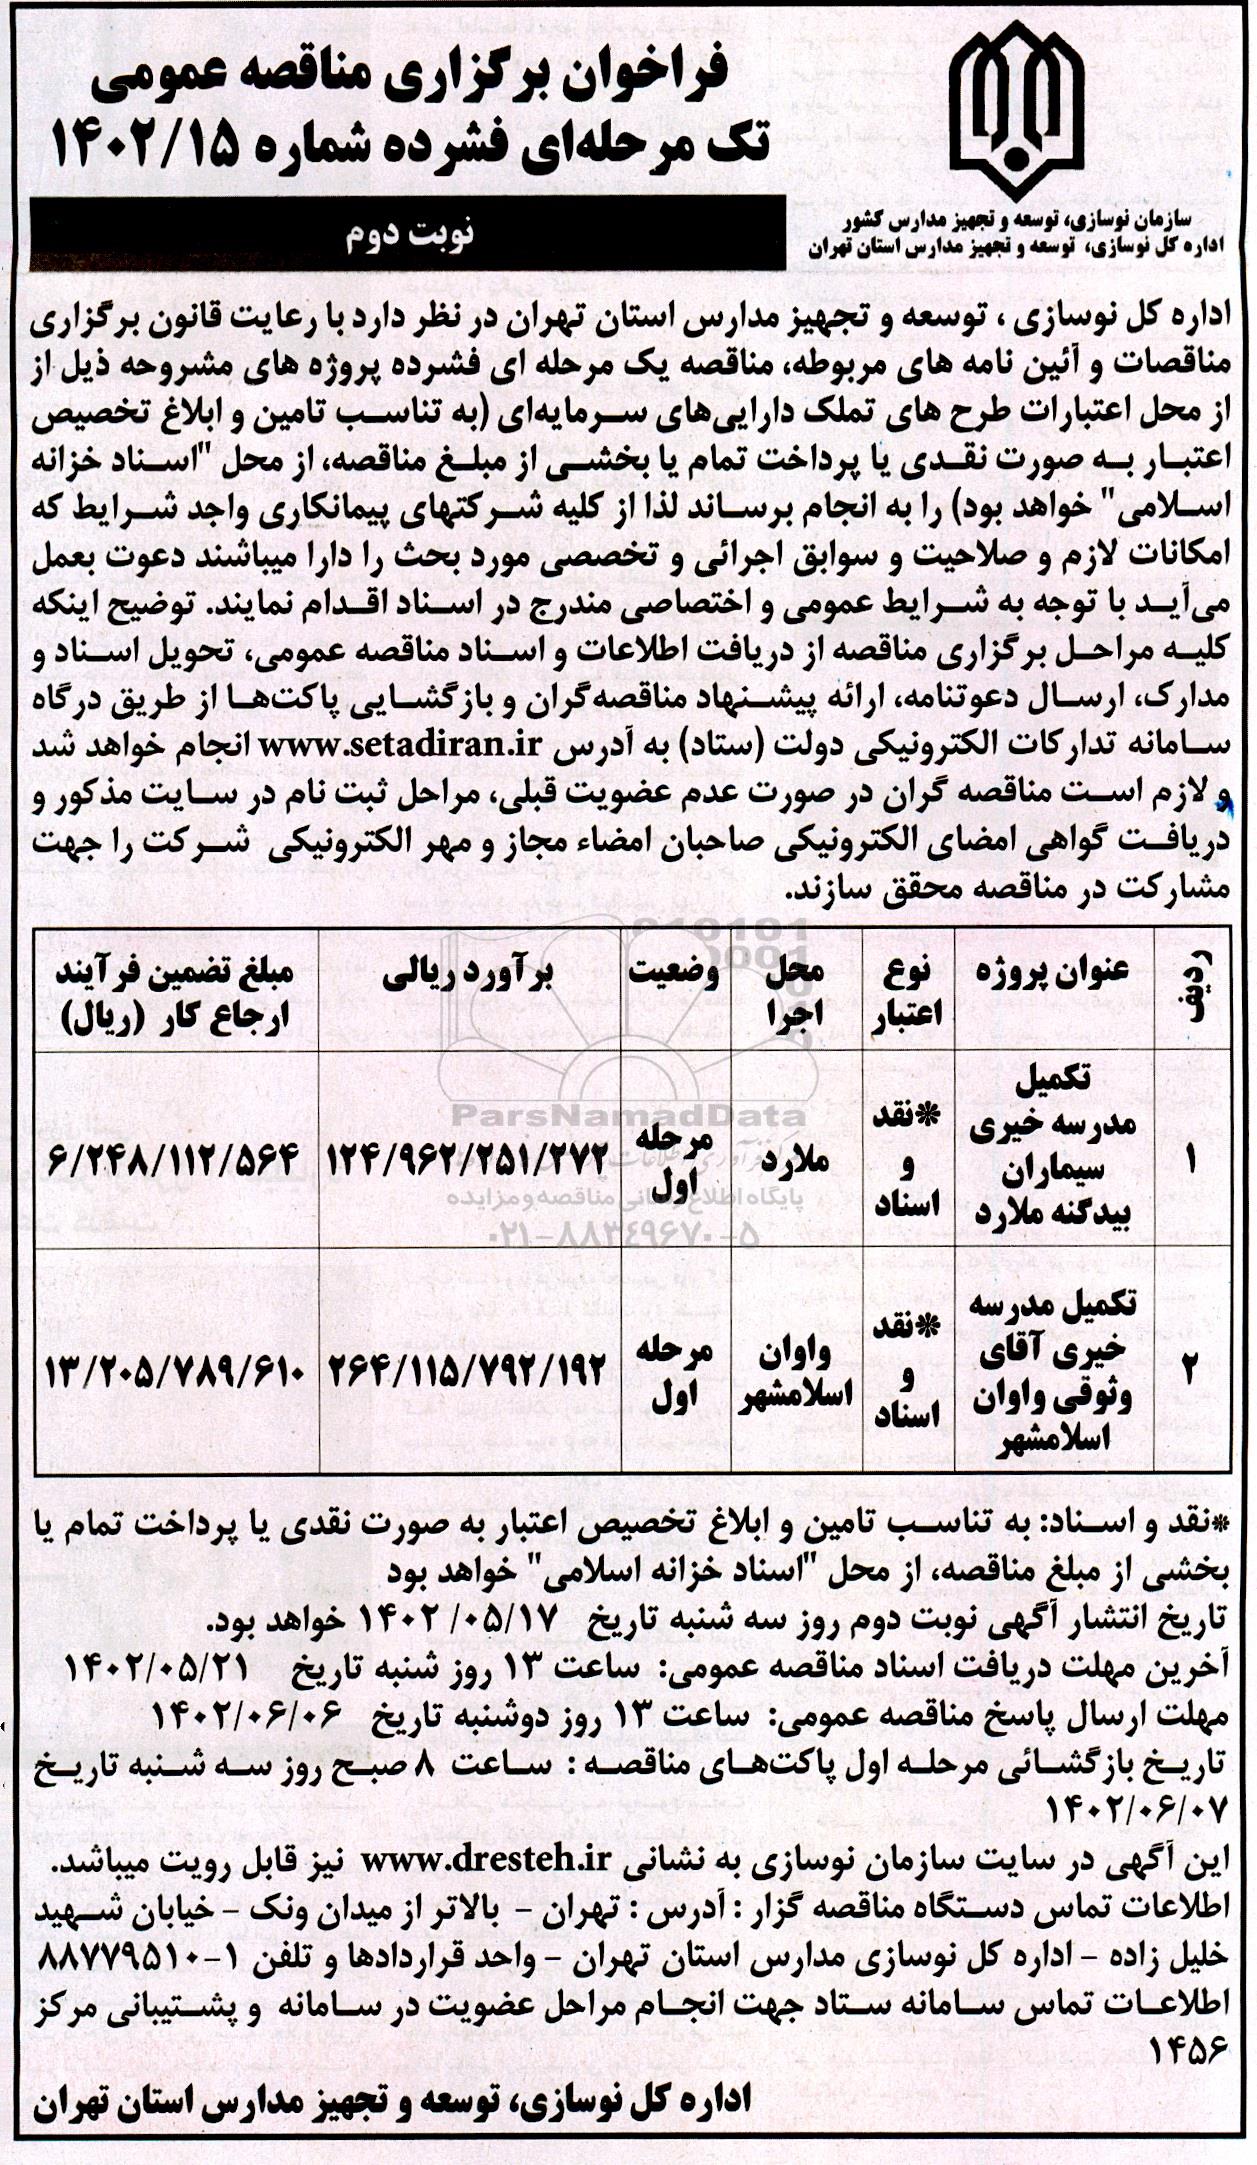 فراخوان برگزاری مناقصه عمومی
تک مرحله‌ای فشرده شماره ۱۴۰۲/۱۵
نوبت دوم
سازمان نوسازی، توسعه و تجهیز مدارس کشور
اداره کل نوسازی، توسعه و تجهیز مدارس استان تهران
اداره کل نوسازی ، توسعه و تجهیز مدارس استان تهران در نظر دارد با رعایت قانون برگزاری
مناقصات و آئین نامه های مربوطه، مناقصه یک مرحله ای فشرده پروژه های مشروحه ذیل از
از محل اعتبارات طرح های تملک دارایی‌های سرمایه‌ای (به تناسب تامین و ابلاغ تخصیص
اعتبار به صورت نقدی یا پرداخت تمام یا بخشی از مبلغ مناقصه، از محل "اسناد خزانه
اسلامی" خواهد بود) را به انجام برساند لذا از کلیه شرکتهای پیمانکاری واجد شرایط که
امکانات لازم و صلاحیت و سوابق اجرائی و تخصصی مورد بحث را دارا میباشند دعوت بعمل
می‌آید با توجه به شرایط عمومی و اختصاصی مندرج در اسناد اقدام نمایند. توضیح اینکه
کلیه مراحل برگزاری مناقصه از دریافت اطلاعات و اسناد مناقصه عمومی، تحویل اسناد و
مدارک، ارسال دعوتنامه، ارائه پیشنهاد مناقصه‌گران و بازگشایی پاکت‌ها از طریق درگاه
سامانه تدارکات الکترونیکی دولت (ستاد) به آدرس www.setadiran.ir انجام خواهد شد
و لازم است مناقصه گران در صورت عدم عضویت قبلی، مراحل ثبت نام در سایت مذکور و
دریافت گواهی امضای الکترونیکی صاحبان امضاء مجاز و مهر الکترونیکی شرکت را جهت
مشارکت در مناقصه محقق سازند.
ردیف | عنوان پروژه | نوع اعتبار | محل اجرا | وضعیت | برآورد ریالی | مبلغ تضمین فرآیند ارجاع کار (ریال)
۱ | تکمیل مدرسه خیری سیماران بیدگنه ملارد | *نقد و اسناد | ملارد | مرحله اول | ۱۲۴/۹۶۲/۲۵۱/۲۷۲ | ۶/۲۴۸/۱۱۲/۵۶۴
۲ | تکمیل مدرسه خیری آقای وثوقی واوان اسلامشهر | *نقد و اسناد | واوان اسلامشهر | مرحله اول | ۲۶۴/۱۱۵/۷۹۲/۱۹۲ | ۱۳/۲۰۵/۷۸۹/۶۱۰
ParsNamadData
پایگاه اطلاع رسانی مناقصه و مزایده
۰۲۱-۸۸۳۴۹۶۷۰-۵
*نقد و اسناد: به تناسب تامین و ابلاغ تخصیص اعتبار به صورت نقدی یا پرداخت تمام یا
بخشی از مبلغ مناقصه، از محل "اسناد خزانه اسلامی" خواهد بود
تاریخ انتشار آگهی نوبت دوم روز سه شنبه تاریخ ۱۴۰۲ /۰۵/۱۷ خواهد بود.
آخرین مهلت دریافت اسناد مناقصه عمومی: ساعت ۱۳ روز شنبه تاریخ ۱۴۰۲/۰۵/۲۱
مهلت ارسال پاسخ مناقصه عمومی: ساعت ۱۳ روز دوشنبه تاریخ ۱۴۰۲/۰۶/۰۶
تاریخ بازگشائی مرحله اول پاکت‌های مناقصه : ساعت ۸ صبح روز سه شنبه تاریخ
۱۴۰۲/۰۶/۰۷
این آگهی در سایت سازمان نوسازی به نشانی www.dresteh.ir نیز قابل رویت میباشد.
اطلاعات تماس دستگاه مناقصه گزار : آدرس : تهران - بالاتر از میدان ونک - خیابان شهید
خلیل زاده - اداره کل نوسازی مدارس استان تهران - واحد قراردادها و تلفن ۱-۸۸۷۷۹۵۱۰
اطلاعات تماس سامانه ستاد جهت انجام مراحل عضویت در سامانه و پشتیبانی مرکز
۱۴۵۶
اداره کل نوسازی، توسعه و تجهیز مدارس استان تهران